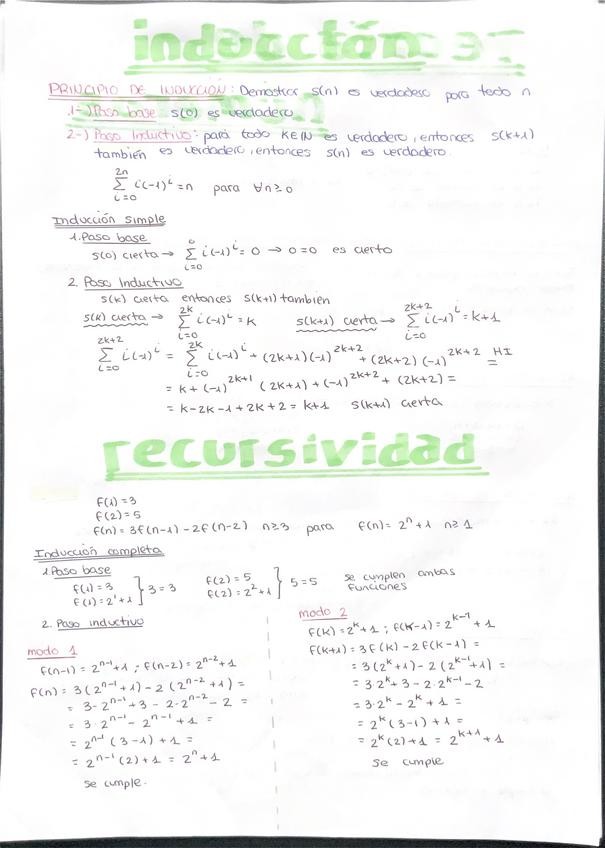 inducción
PRINCIPIO DE INDUCCIÓN: Demostrar s(n) es verdadero para todo n
1-) Paso base s(0) es verdadero
2-) Paso Inductivo: para todo K∈ℕ es verdadero, entonces s(k+1)
también es verdadero, entonces s(n) es verdadero.
∑_{i=0}^{2n} i(-1)^i = n para ∀n≥0
Inducción simple
1. Paso base
s(0) cierta → ∑_{i=0}^{0} i(-1)^i = 0 → 0=0 es cierto
2. Paso Inductivo
s(k) cierta entonces s(k+1) también
s(k) cierta → ∑_{i=0}^{2k} i(-1)^i = k s(k+1) cierta → ∑_{i=0}^{2k+2} i(-1)^i = k+1
∑_{i=0}^{2k+2} i(-1)^i = ∑_{i=0}^{2k} i(-1)^i + (2k+1)(-1)^{2k+2} + (2k+2)(-1)^{2k+2} HI =
= k + (-1)^{2k+1} (2k+1) + (-1)^{2k+2} + (2k+2) =
= k-2k-1+2k+2 = k+1 s(k+1) cierta
recursividad
f(1)=3
f(2)=5
f(n) = 3f(n-1) - 2f(n-2) n≥3 para f(n) = 2^n + 1 n≥1
Inducción completa
1. Paso base
f(1)=3
f(1)=2^1+1 } 3=3
f(2)=5
f(2)=2^2+1 } 5=5
se cumplen ambas
funciones
2. Paso inductivo
modo 1
f(n-1) = 2^{n-1}+1 ; f(n-2) = 2^{n-2}+1
f(n) = 3(2^{n-1}+1) - 2(2^{n-2}+1) =
= 3·2^{n-1}+3 - 2·2^{n-2} - 2 =
= 3·2^{n-1} - 2^{n-1} + 1 =
= 2^{n-1} (3-1) + 1 =
= 2^{n-1} (2) + 1 = 2^n + 1
se cumple.
modo 2
f(k) = 2^k+1 ; f(k-1) = 2^{k-1}+1
f(k+1) = 3f(k) - 2f(k-1) =
= 3(2^k+1) - 2(2^{k-1}+1) =
= 3·2^k + 3 - 2·2^{k-1} - 2
= 3·2^k - 2^k + 1 =
= 2^k (3-1) + 1 =
= 2^k (2) + 1 = 2^{k+1} + 1
se cumple